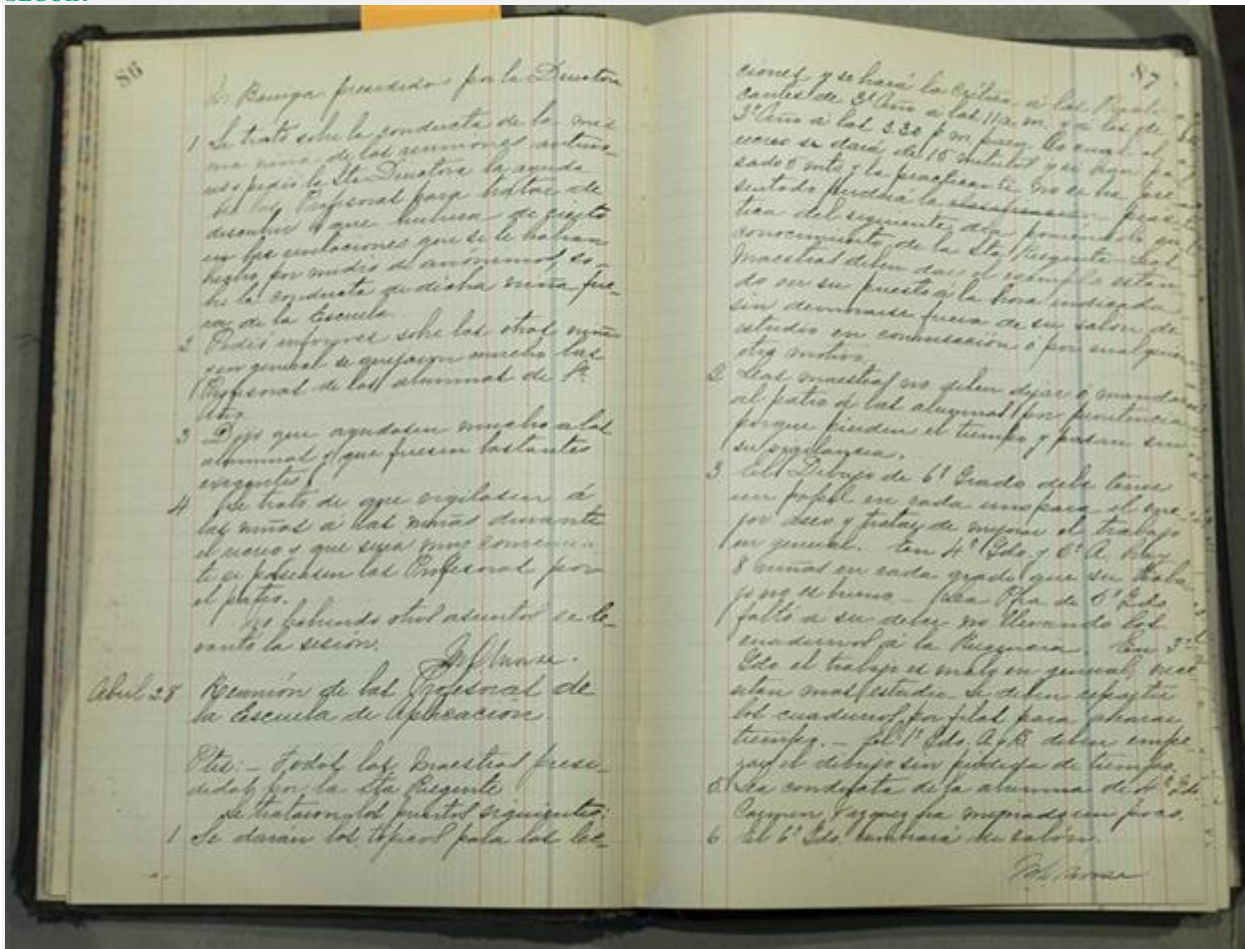 86
presididas por la Directora
1 Se trató sobre la conducta de la mis
ma niña de las reuniones anterio
res y pidió la Sta Directora la ayuda
de las Profesoras para tratar de
descubrir lo que hubiera de cierto
en las
hecho por medio de anonimos, so-
bre la conducta de dicha niña fue-
ra de la Escuela.
2 Pidió informes sobre las otras niñas
y en general se quejaron mucho las
Profesoras de las alumnas de 1er
Año.
3 Dijo que ayudasen mucho a las
alumnas y que fuesen bastantes
exigentes.
4 Se trató de que vigilasen á
las niñas durante
el recreo y que sería muy convenien
te se paseasen las Profesoras por
el patio.
No habiendo otros asuntos se le-
vantó la sesión.
Abril 28 Reunión de las Profesoras de
la Escuela de Aplicación.
Ptes: - Todas las Maestras presi-
didas por la Sta Regente
Se trataron los puntos siguientes:
1 Se darán los tópicos para las lec-
87
ciones y se hará la crítica á las Practi
cantes de 3er Año a las 11 a.m. y a las de
2º Año á las 3.30 p.m. para lo cual el
recreo se dará de 15 minutos y si han pa
sado 5 mts y la practicante no se ha pre
sentado perderá la prác-
tica del siguiente día poniéndolo en
conocimiento de la Sta Regente. Las
Maestras deben dar el ejemplo estan
do en su puesto á la hora indicada
sin demorarse fuera de su salón de
estudio en conversación ó por cualquier
otro motivo.
2 Las maestras no deben dejar o mandar
al patio á las alumnas por penitencia
porque pierden el tiempo y pasan sin
su vigilancia.
3 El Dibujo de 6º Grado debe tener
un papel en cada uno para el me
jor aseo y tratar de mejorar el trabajo
en general. En 4º Gdo. y 6º A. hay
8 niñas en cada grado que su traba
jo no es bueno - La Pra de 6º Gdo
faltó a su deber no llevando los
cuadernos á la Regencia. En 3er
Gdo el trabajo es malo en general, nece
sitan mas estudio. Se deben repartir
los cuadernos por filas para ahorrar
tiempo. - El 1º Gdo. A y B deben empe
zar el dibujo sin pérdida de tiempo.
5 La conducta de la alumna de 4º Gdo
Carmen Vazquez ha mejorado un poco.
6 El 6º Gdo. cambiará de salón.